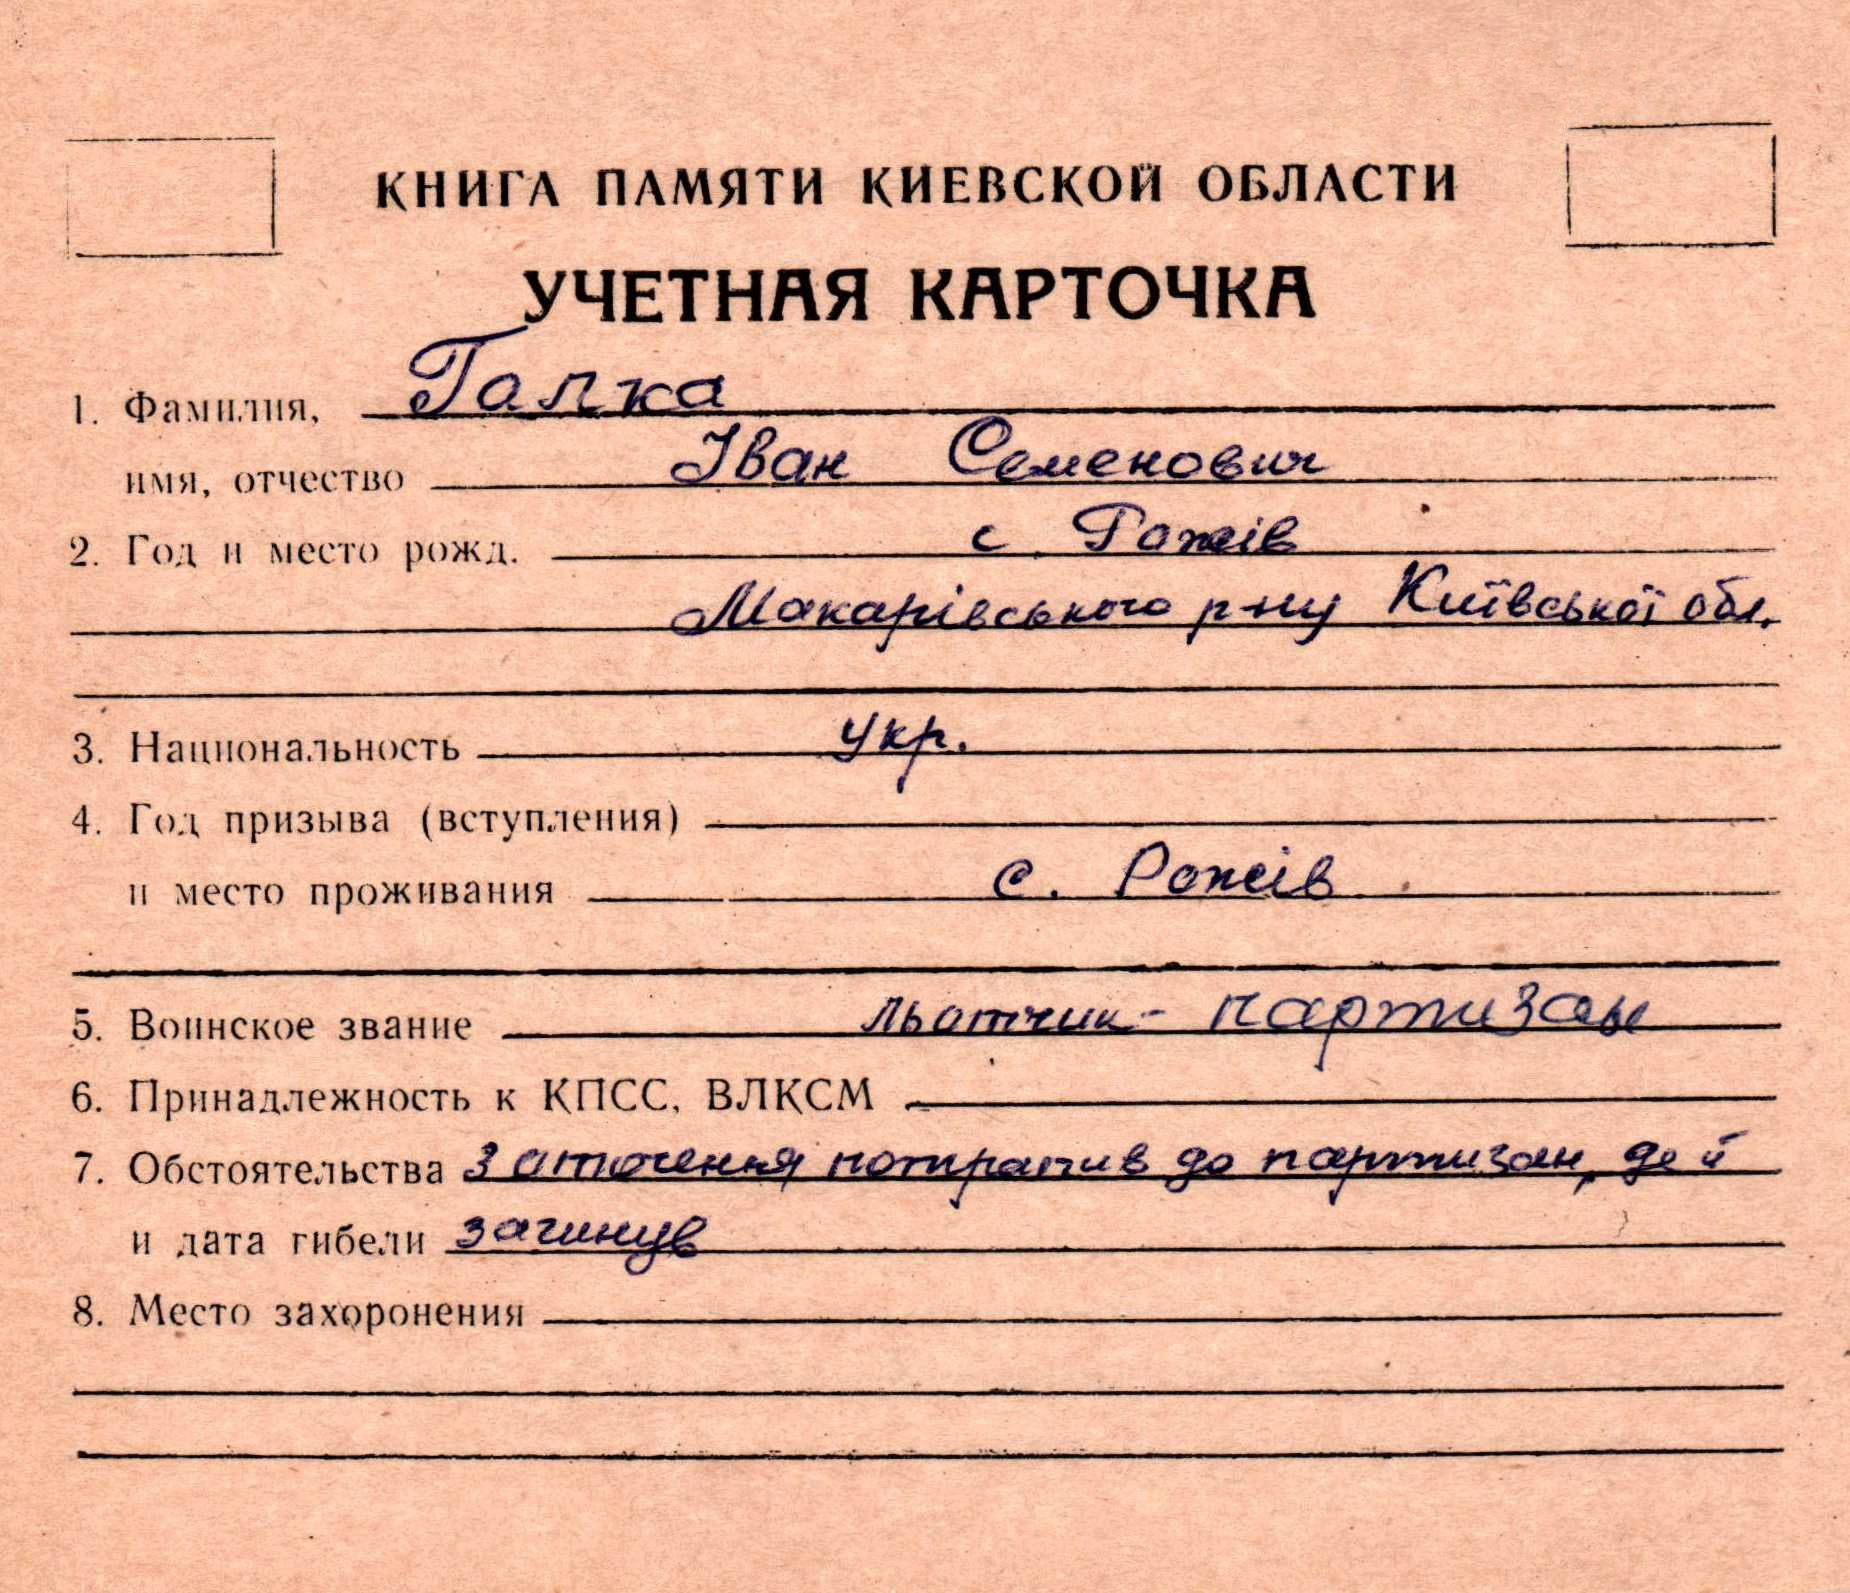 КНИГА ПАМЯТИ КИЕВСКОЙ ОБЛАСТИ
УЧЕТНАЯ КАРТОЧКА
1. Фамилия, Галка
имя, отчество Іван Семенович
2. Год и место рожд. с. Рожів
Макарівського р-ну Київської обл.
3. Национальность укр.
4. Год призыва (вступления)
и место проживания с. Рожів
5. Воинское звание льотчик - партизан
6. Принадлежность к КПСС, ВЛКСМ
7. Обстоятельства З оточення потрапив до партизан, де й
и дата гибели загинув
8. Место захоронения